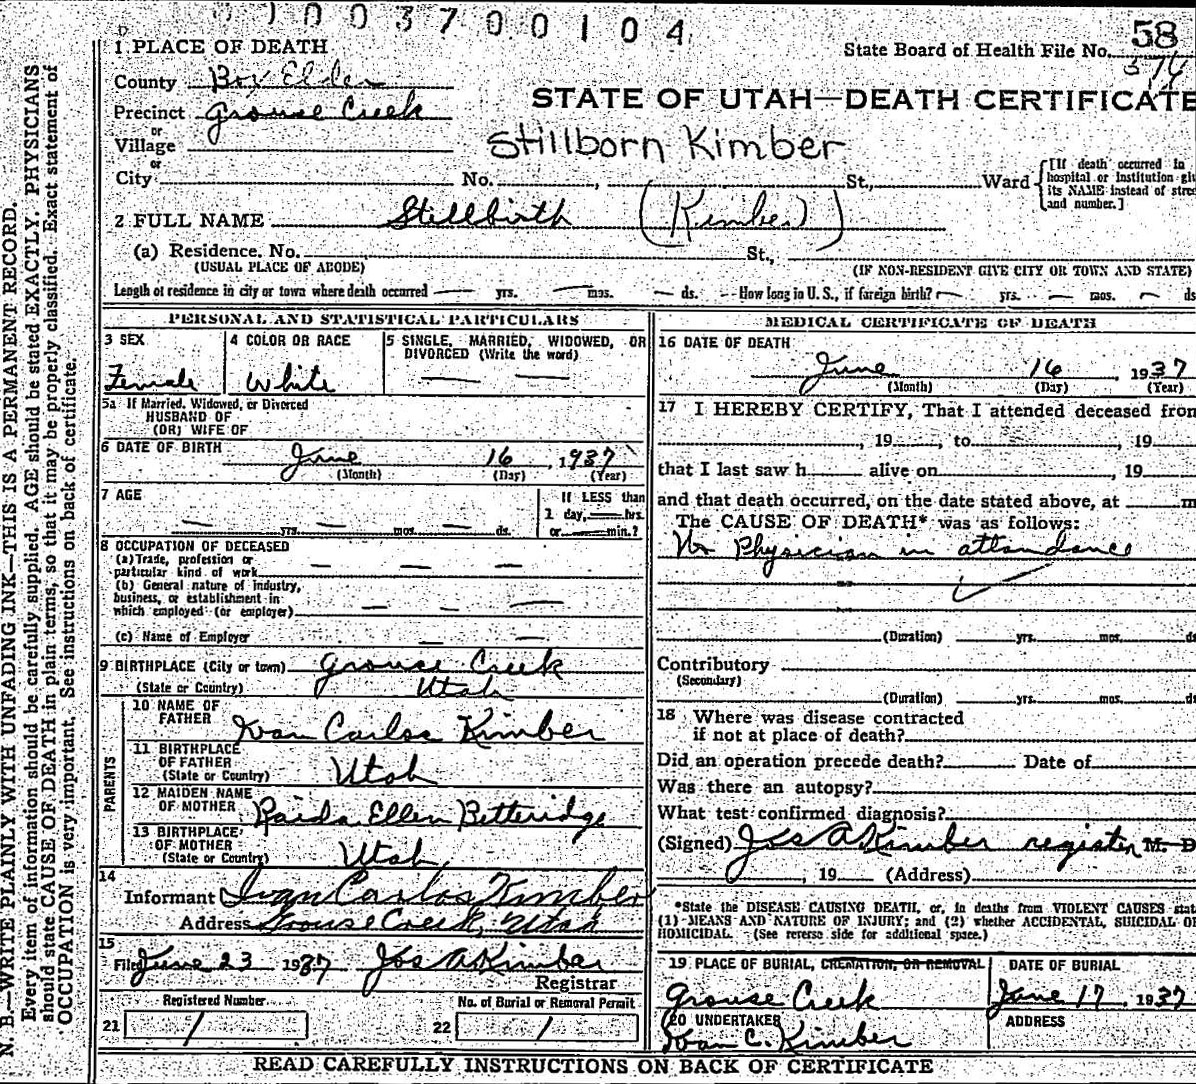 0 1 0 0 3 7 0 0 1 0 4
58
State Board of Health File No.
1 PLACE OF DEATH
County Box Elder
STATE OF UTAH—DEATH CERTIFICATE
Precinct Grouse Creek
or
Village
Stillborn Kimber
or
City No. , St., Ward
[If death occurred in
hospital or institution giv
its NAME instead of stre
and number.]
2 FULL NAME Stillbirth (Kimber)
(a) Residence. No. St.,
(USUAL PLACE OF ABODE) (IF NON-RESIDENT GIVE CITY OR TOWN AND STATE)
Length of residence in city or town where death occurred — yrs. — mos. — ds. How long in U. S., if foreign birth? — yrs. — mos. — ds
PERSONAL AND STATISTICAL PARTICULARS
3 SEX
Female
4 COLOR OR RACE
White
5 SINGLE, MARRIED, WIDOWED, OR
DIVORCED (Write the word)
— —
5a If Married, Widowed, or Divorced
HUSBAND OF
(OR) WIFE OF
6 DATE OF BIRTH June 16, 1937
(Month) (Day) (Year)
7 AGE
— yrs. — mos. — ds.
If LESS than
1 day, — hrs.
or — min.?
8 OCCUPATION OF DECEASED
(a) Trade, profession or
particular kind of work — — —
(b) General nature of industry,
business, or establishment in
which employed (or employer) — — —
(c) Name of Employer — —
9 BIRTHPLACE (City or town) Grouse Creek
(State or Country) Utah
PARENTS
10 NAME OF
FATHER Ivan Carlos Kimber
11 BIRTHPLACE
OF FATHER
(State or Country) Utah
12 MAIDEN NAME
OF MOTHER Raida Ellen Betteridge
13 BIRTHPLACE
OF MOTHER
(State or Country) Utah
14
Informant Ivan Carlos Kimber
Address Grouse Creek, Utah
15
Filed June 23 1937 Jos A Kimber
Registrar
Registered Number
21 1
No. of Burial or Removal Permit
22 1
MEDICAL CERTIFICATE OF DEATH
16 DATE OF DEATH
June 16, 1937
(Month) (Day) (Year)
17 I HEREBY CERTIFY, That I attended deceased from
, 19 , to , 19
that I last saw h alive on , 19
and that death occurred, on the date stated above, at m
The CAUSE OF DEATH* was as follows:
No Physician in attendance
(Duration) yrs. mos. ds
Contributory
(Secondary)
(Duration) yrs. mos. ds
18 Where was disease contracted
if not at place of death?
Did an operation precede death? Date of
Was there an autopsy?
What test confirmed diagnosis?
(Signed) Jos A Kimber register M. D
, 19 (Address)
*State the DISEASE CAUSING DEATH, or, in deaths from VIOLENT CAUSES stat
(1) MEANS AND NATURE OF INJURY; and (2) whether ACCIDENTAL, SUICIDAL OR
HOMICIDAL. (See reverse side for additional space.)
19 PLACE OF BURIAL, CREMATION, OR REMOVAL
Grouse Creek
DATE OF BURIAL
June 17, 1937
20 UNDERTAKER
Ivan C. Kimber
ADDRESS
READ CAREFULLY INSTRUCTIONS ON BACK OF CERTIFICATE
N. B.—WRITE PLAINLY WITH UNFADING INK—THIS IS A PERMANENT RECORD.
Every item of information should be carefully supplied. AGE should be stated EXACTLY. PHYSICIANS
should state CAUSE OF DEATH in plain terms, so that it may be properly classified. Exact statement of
OCCUPATION is very important. See instructions on back of certificate.